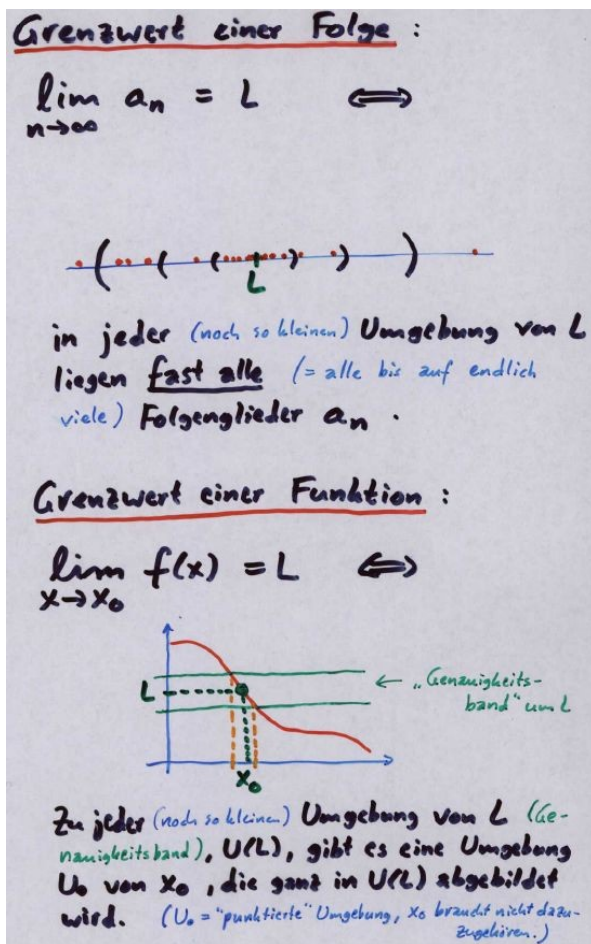 Grenzwert einer Folge :
lim aₙ = L ⟺
n→∞
L
in jeder (noch so kleinen) Umgebung von L
liegen fast alle (= alle bis auf endlich
viele) Folgenglieder aₙ .
Grenzwert einer Funktion :
lim f(x) = L ⟺
x→x₀
← „Genauigkeits-
band" um L
L
x₀
Zu jeder (noch so kleinen) Umgebung von L (Ge-
nauigkeitsband), U(L), gibt es eine Umgebung
U₀ von x₀, die ganz in U(L) abgebildet
wird. (U₀ = "punktierte" Umgebung, x₀ braucht nicht dazu-
zugehören.)